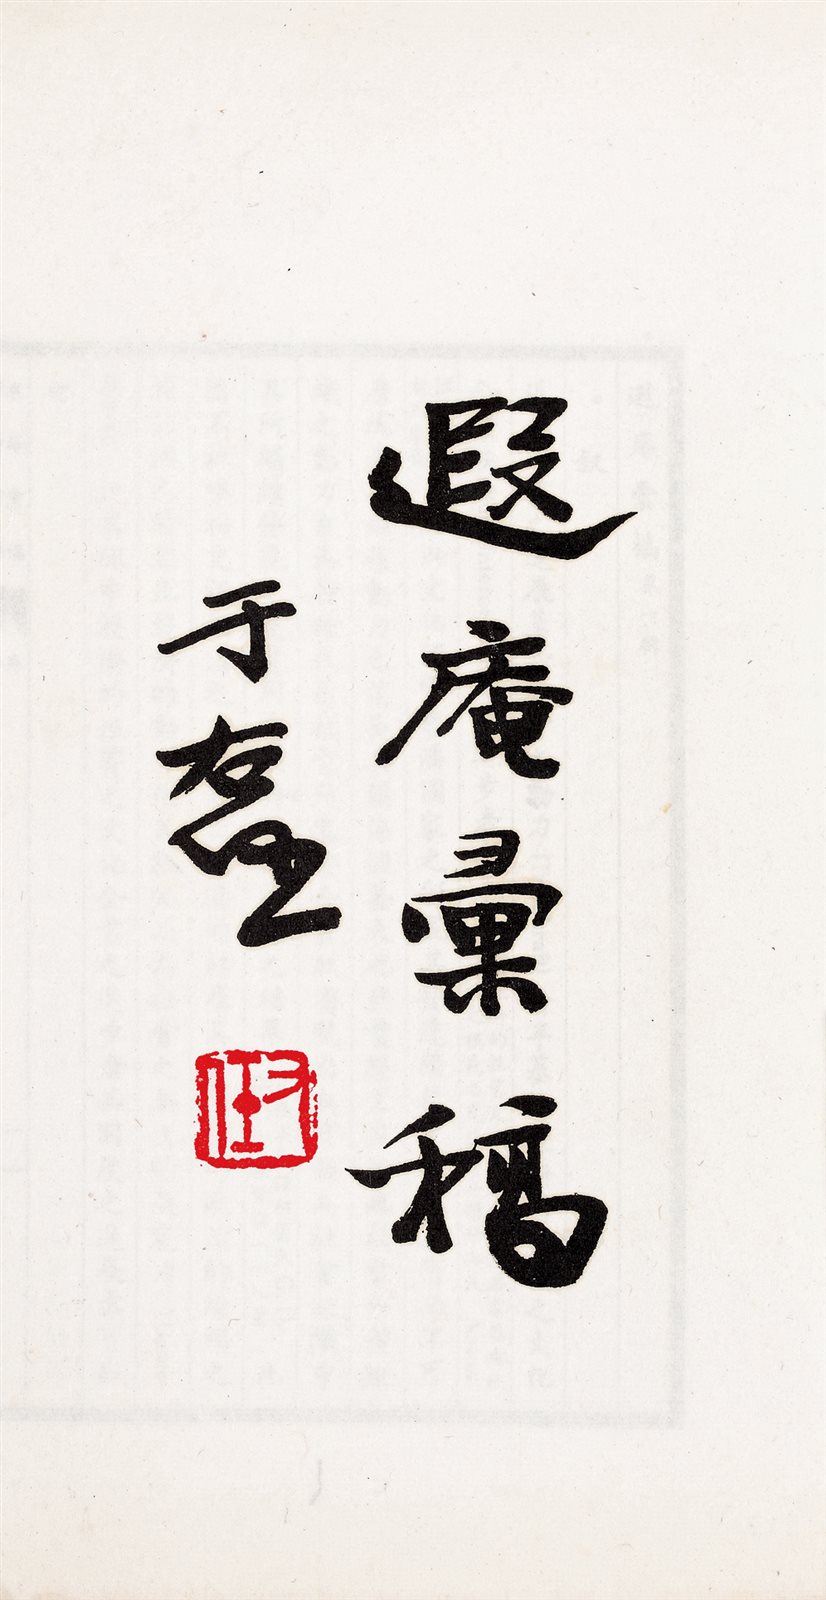 遐庵彙稿
于右任
右任